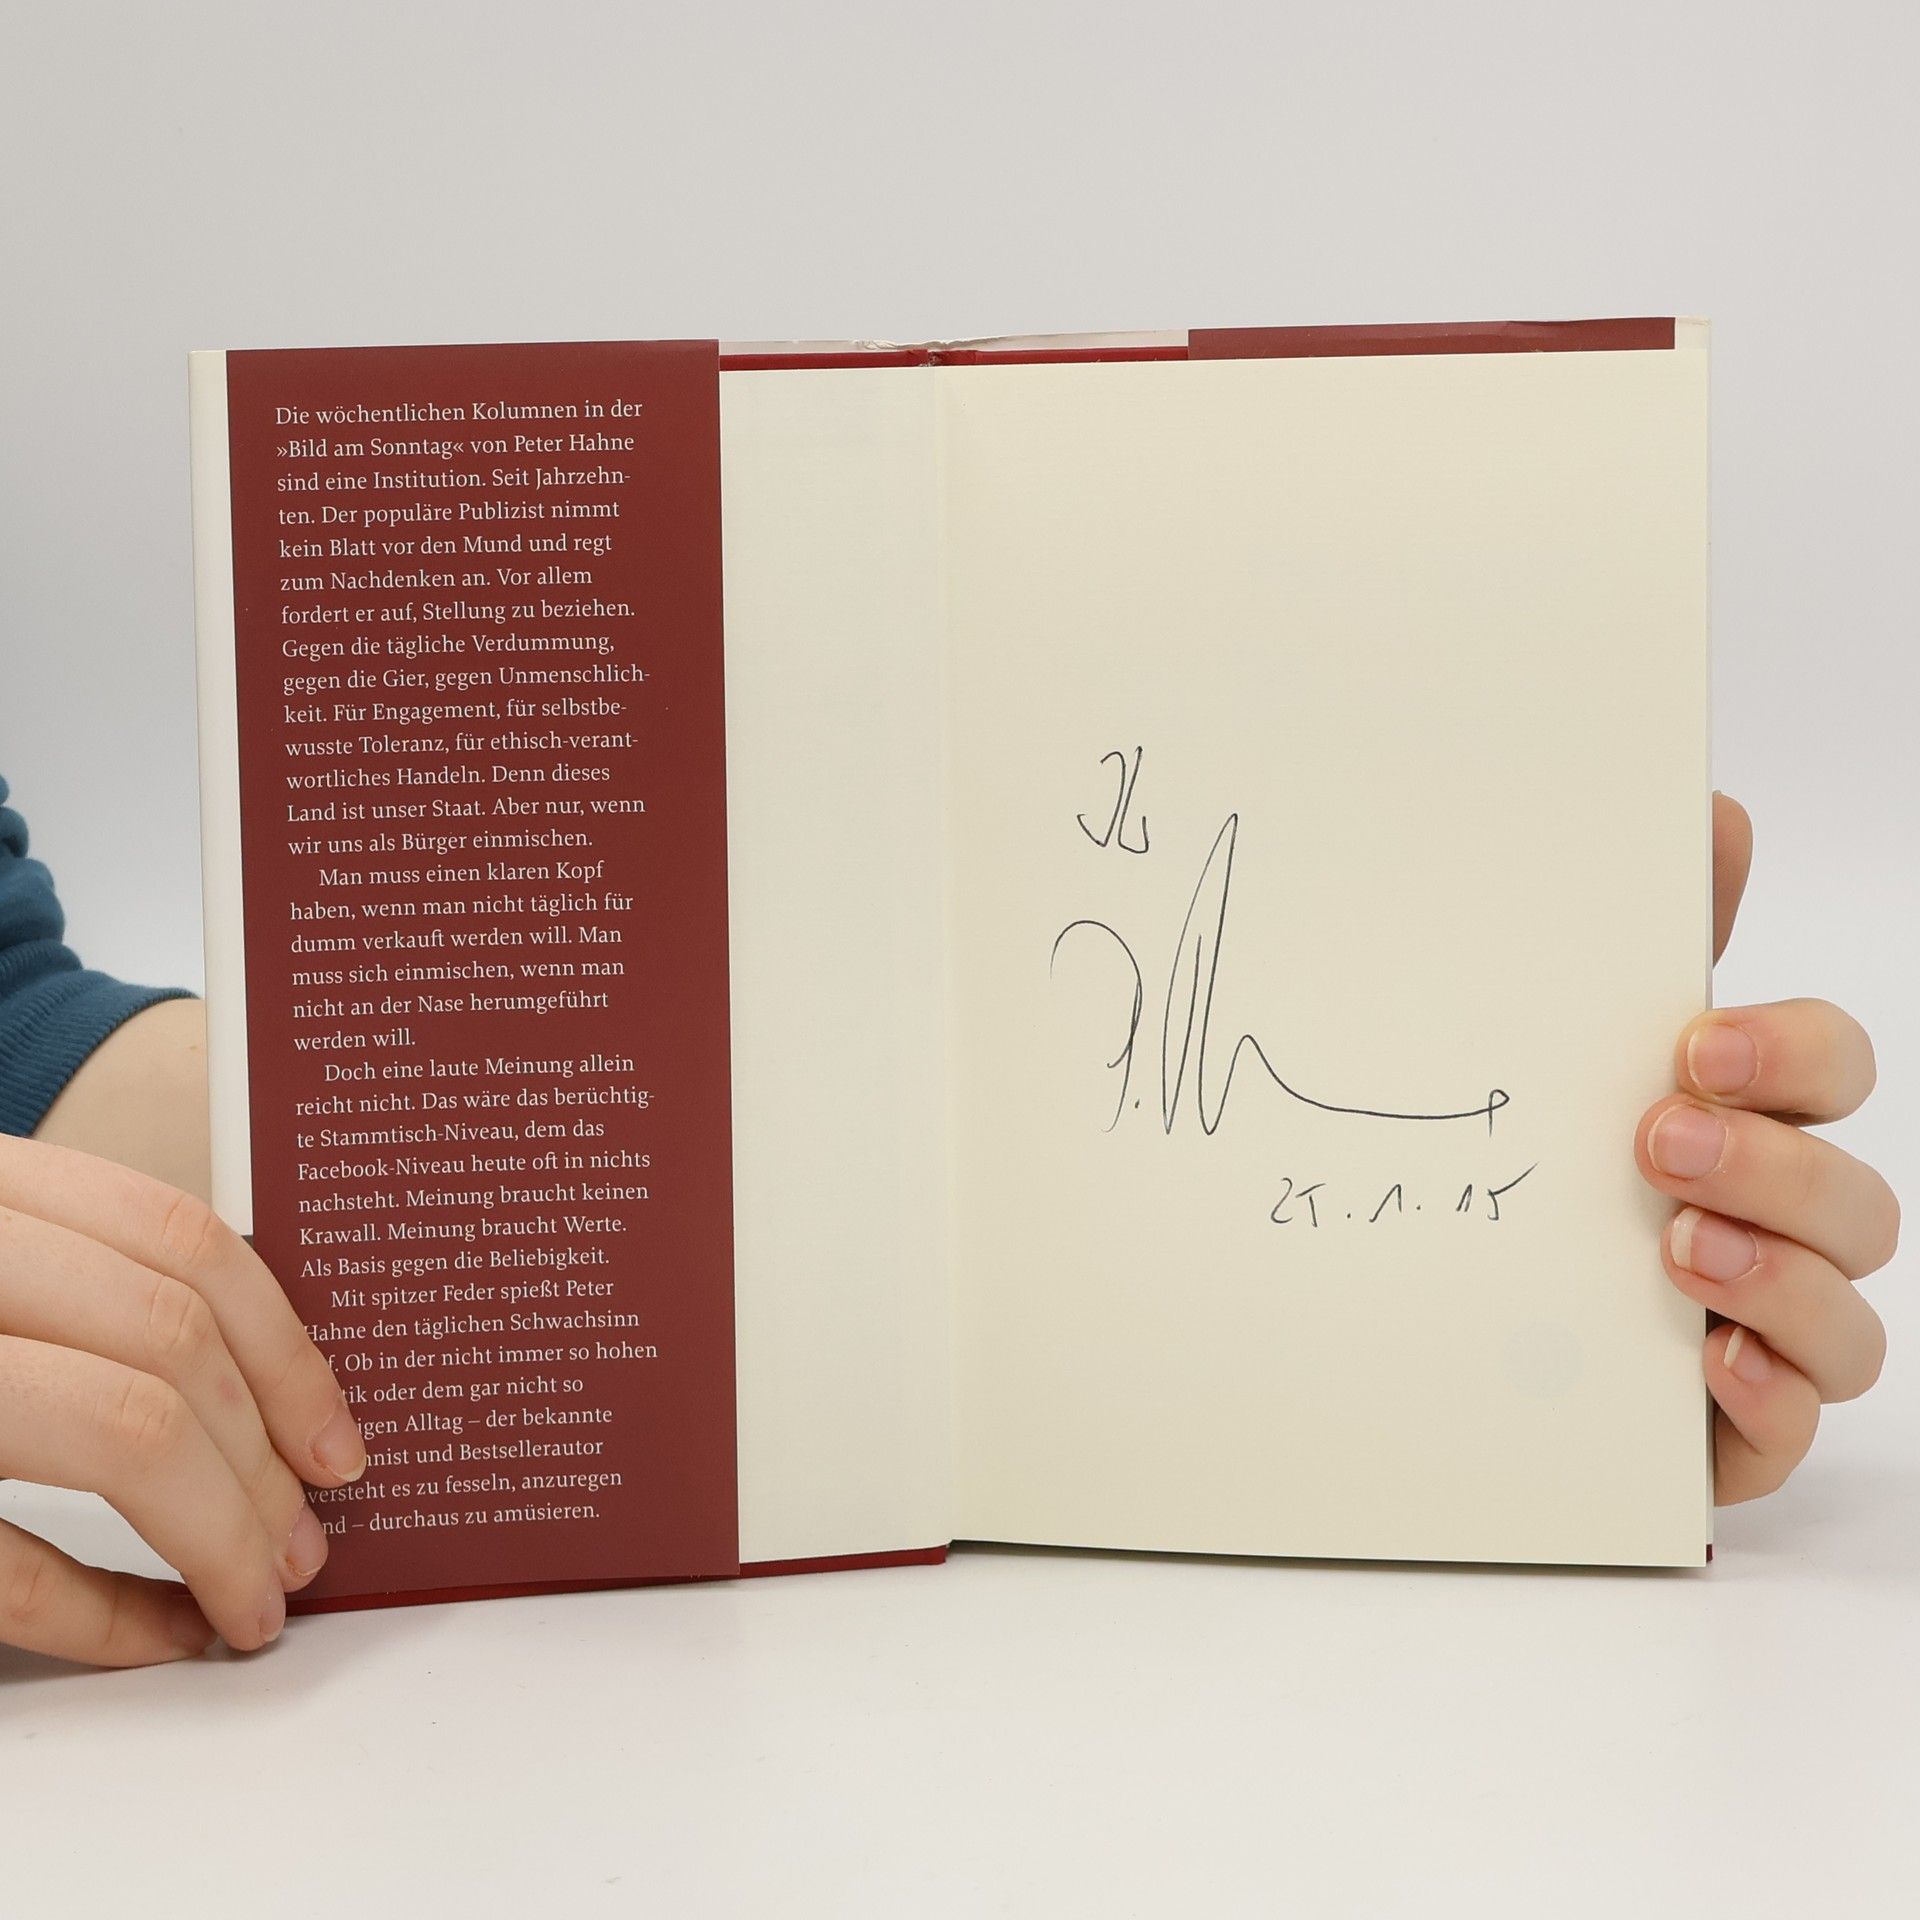 Die wöchentlichen Kolumnen in der
»Bild am Sonntag« von Peter Hahne
sind eine Institution. Seit Jahrzehn-
ten. Der populäre Publizist nimmt
kein Blatt vor den Mund und regt
zum Nachdenken an. Vor allem
fordert er auf, Stellung zu beziehen.
Gegen die tägliche Verdummung,
gegen die Gier, gegen Unmenschlich-
keit. Für Engagement, für selbstbe-
wusste Toleranz, für ethisch-verant-
wortliches Handeln. Denn dieses
Land ist unser Staat. Aber nur, wenn
wir uns als Bürger einmischen.
Man muss einen klaren Kopf
haben, wenn man nicht täglich für
dumm verkauft werden will. Man
muss sich einmischen, wenn man
nicht an der Nase herumgeführt
werden will.
Doch eine laute Meinung allein
reicht nicht. Das wäre das berüchtig-
te Stammtisch-Niveau, dem das
Facebook-Niveau heute oft in nichts
nachsteht. Meinung braucht keinen
Krawall. Meinung braucht Werte.
Als Basis gegen die Beliebigkeit.
Mit spitzer Feder spießt Peter
Hahne den täglichen Schwachsinn
f. Ob in der nicht immer so hohen
tik oder dem gar nicht so
igen Alltag – der bekannte
nist und Bestsellerautor
versteht es zu fesseln, anzuregen
nd – durchaus zu amüsieren.
25.1.15